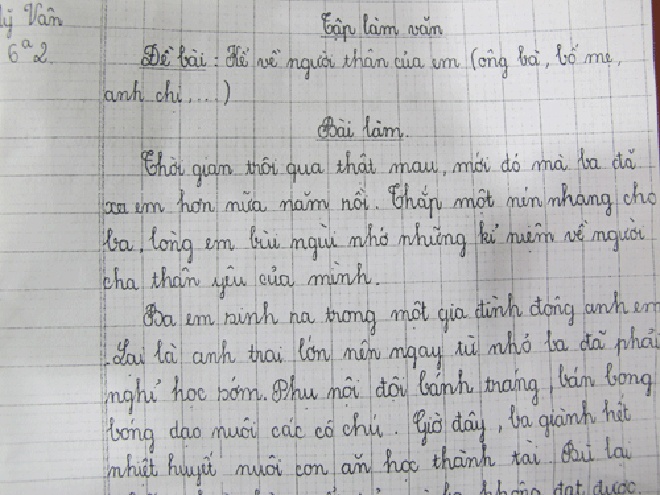 lý Vân
6ᵃ2
Tập làm văn
Đề bài : Kể về người thân của em (ông bà, bố mẹ,
anh chị,....)
Bài làm.
Thời gian trôi qua thật mau, mới đó mà ba đã
xa em hơn nửa năm rồi. Thắp một nén nhang cho
ba, lòng em bùi ngùi nhớ những kỉ niệm về người
cha thân yêu của mình.
Ba em sinh ra trong một gia đình đông anh em
Lại là anh trai lớn nên ngay từ nhỏ ba đã phải
nghỉ học sớm. Phụ nội đội bánh tráng, bán bong
bóng dạo nuôi các cô chú. Giờ đây, ba giành hết
nhiệt huyết nuôi con ăn học thành tài. Bù lại
không đạt được.